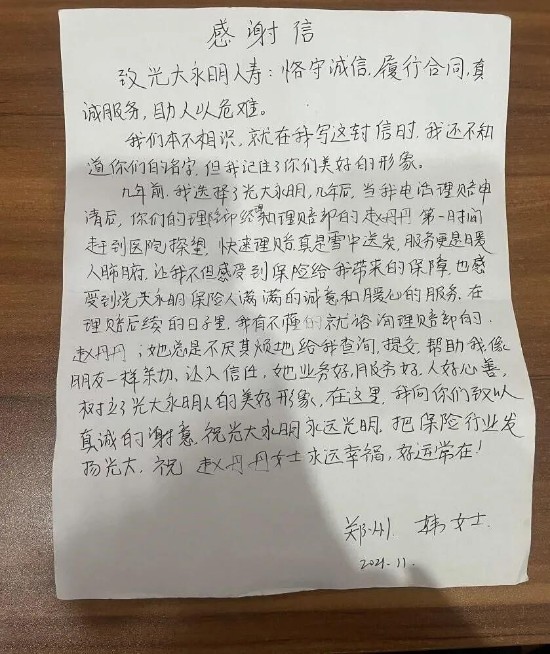 感谢信
致光大永明人寿：恪守诚信，履行合同，真
诚服务，助人以危难。
我们本不相识，就在我写这封信时，我还不知
道你们的名字，但我记住了你们美好的形象。
九年前，我选择了光大永明，九年后，当我电话理赔申
请后，你们的理赔部经理和理赔部的赵丹丹第一时间
赶到医院探望，快速理赔真是雪中送炭，服务更是暖
人肺腑，让我不但感受到保险给我带来的保障，也感
受到光大永明的保险人满满的诚意和暖心的服务。在
理赔后续的日子里，我有不懂的就咨询理赔部的，
赵丹丹；她总是不厌其烦地给我查询，提交，帮助我，像
朋友一样亲切、让人信任，她业务好，服务好，人好心善，
树立了光大永明人的美好形象，在这里，我向你们致以
真诚的谢意，祝光大永明永远光明，把保险行业发
扬光大，祝 赵丹丹女士永远幸福，好运常在！
郑州 韩女士
2021.11.